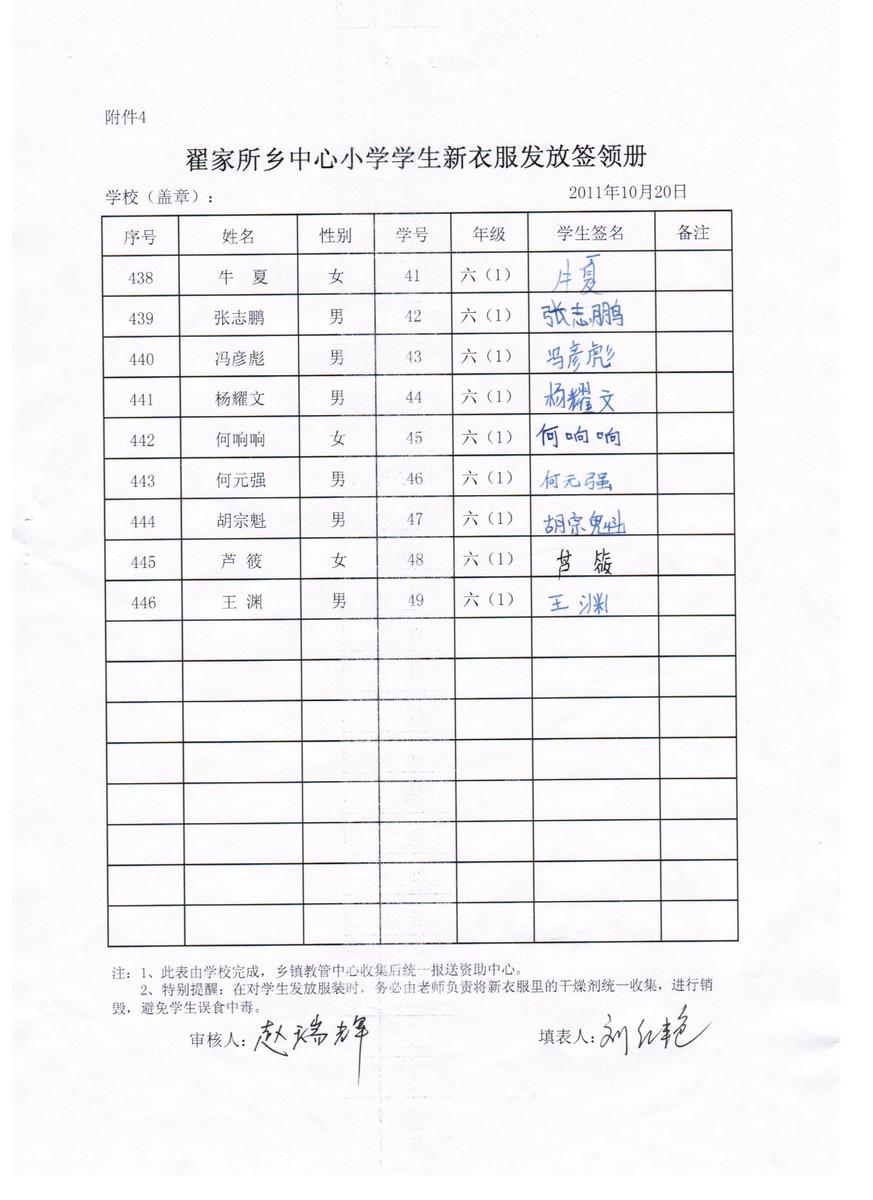 附件4
翟家所乡中心小学学生新衣服发放签领册
学校（盖章）： 2011年10月20日
序号 姓名 性别 学号 年级 学生签名 备注
438 牛 夏 女 41 六（1） 牛夏
439 张志鹏 男 42 六（1） 张志鹏
440 冯彦彪 男 43 六（1） 冯彦彪
441 杨耀文 男 44 六（1） 杨耀文
442 何响响 女 45 六（1） 何响响
443 何元强 男 46 六（1） 何元强
444 胡宗魁 男 47 六（1） 胡宗魁
445 芦 筱 女 48 六（1） 芦 筱
446 王 渊 男 49 六（1） 王 渊
注：1、此表由学校完成，乡镇教管中心收集后统一报送资助中心。
2、特别提醒：在对学生发放服装时，务必由老师负责将新衣服里的干燥剂统一收集，进行销
毁，避免学生误食中毒。
审核人：赵瑞辉 填表人：刘红艳